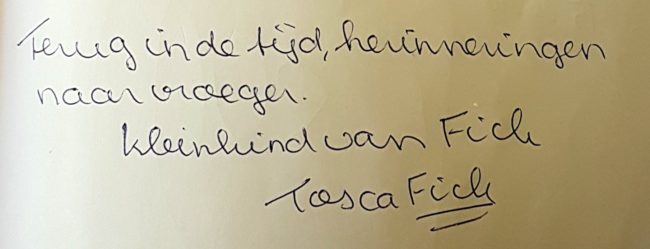 Terug in de tijd, herinneringen
naar vroeger.
Kleinkind van Fick
Tosca Fick